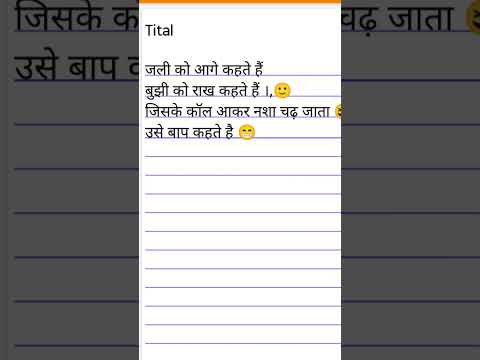 Tital
जली को आगे कहते हैं
बुझी को राख कहते हैं ।,🙂
जिसके कॉल आकर नशा चढ़ जाता
उसे बाप कहते है 😁
जिसके
चढ़ जाता
उसे बाप